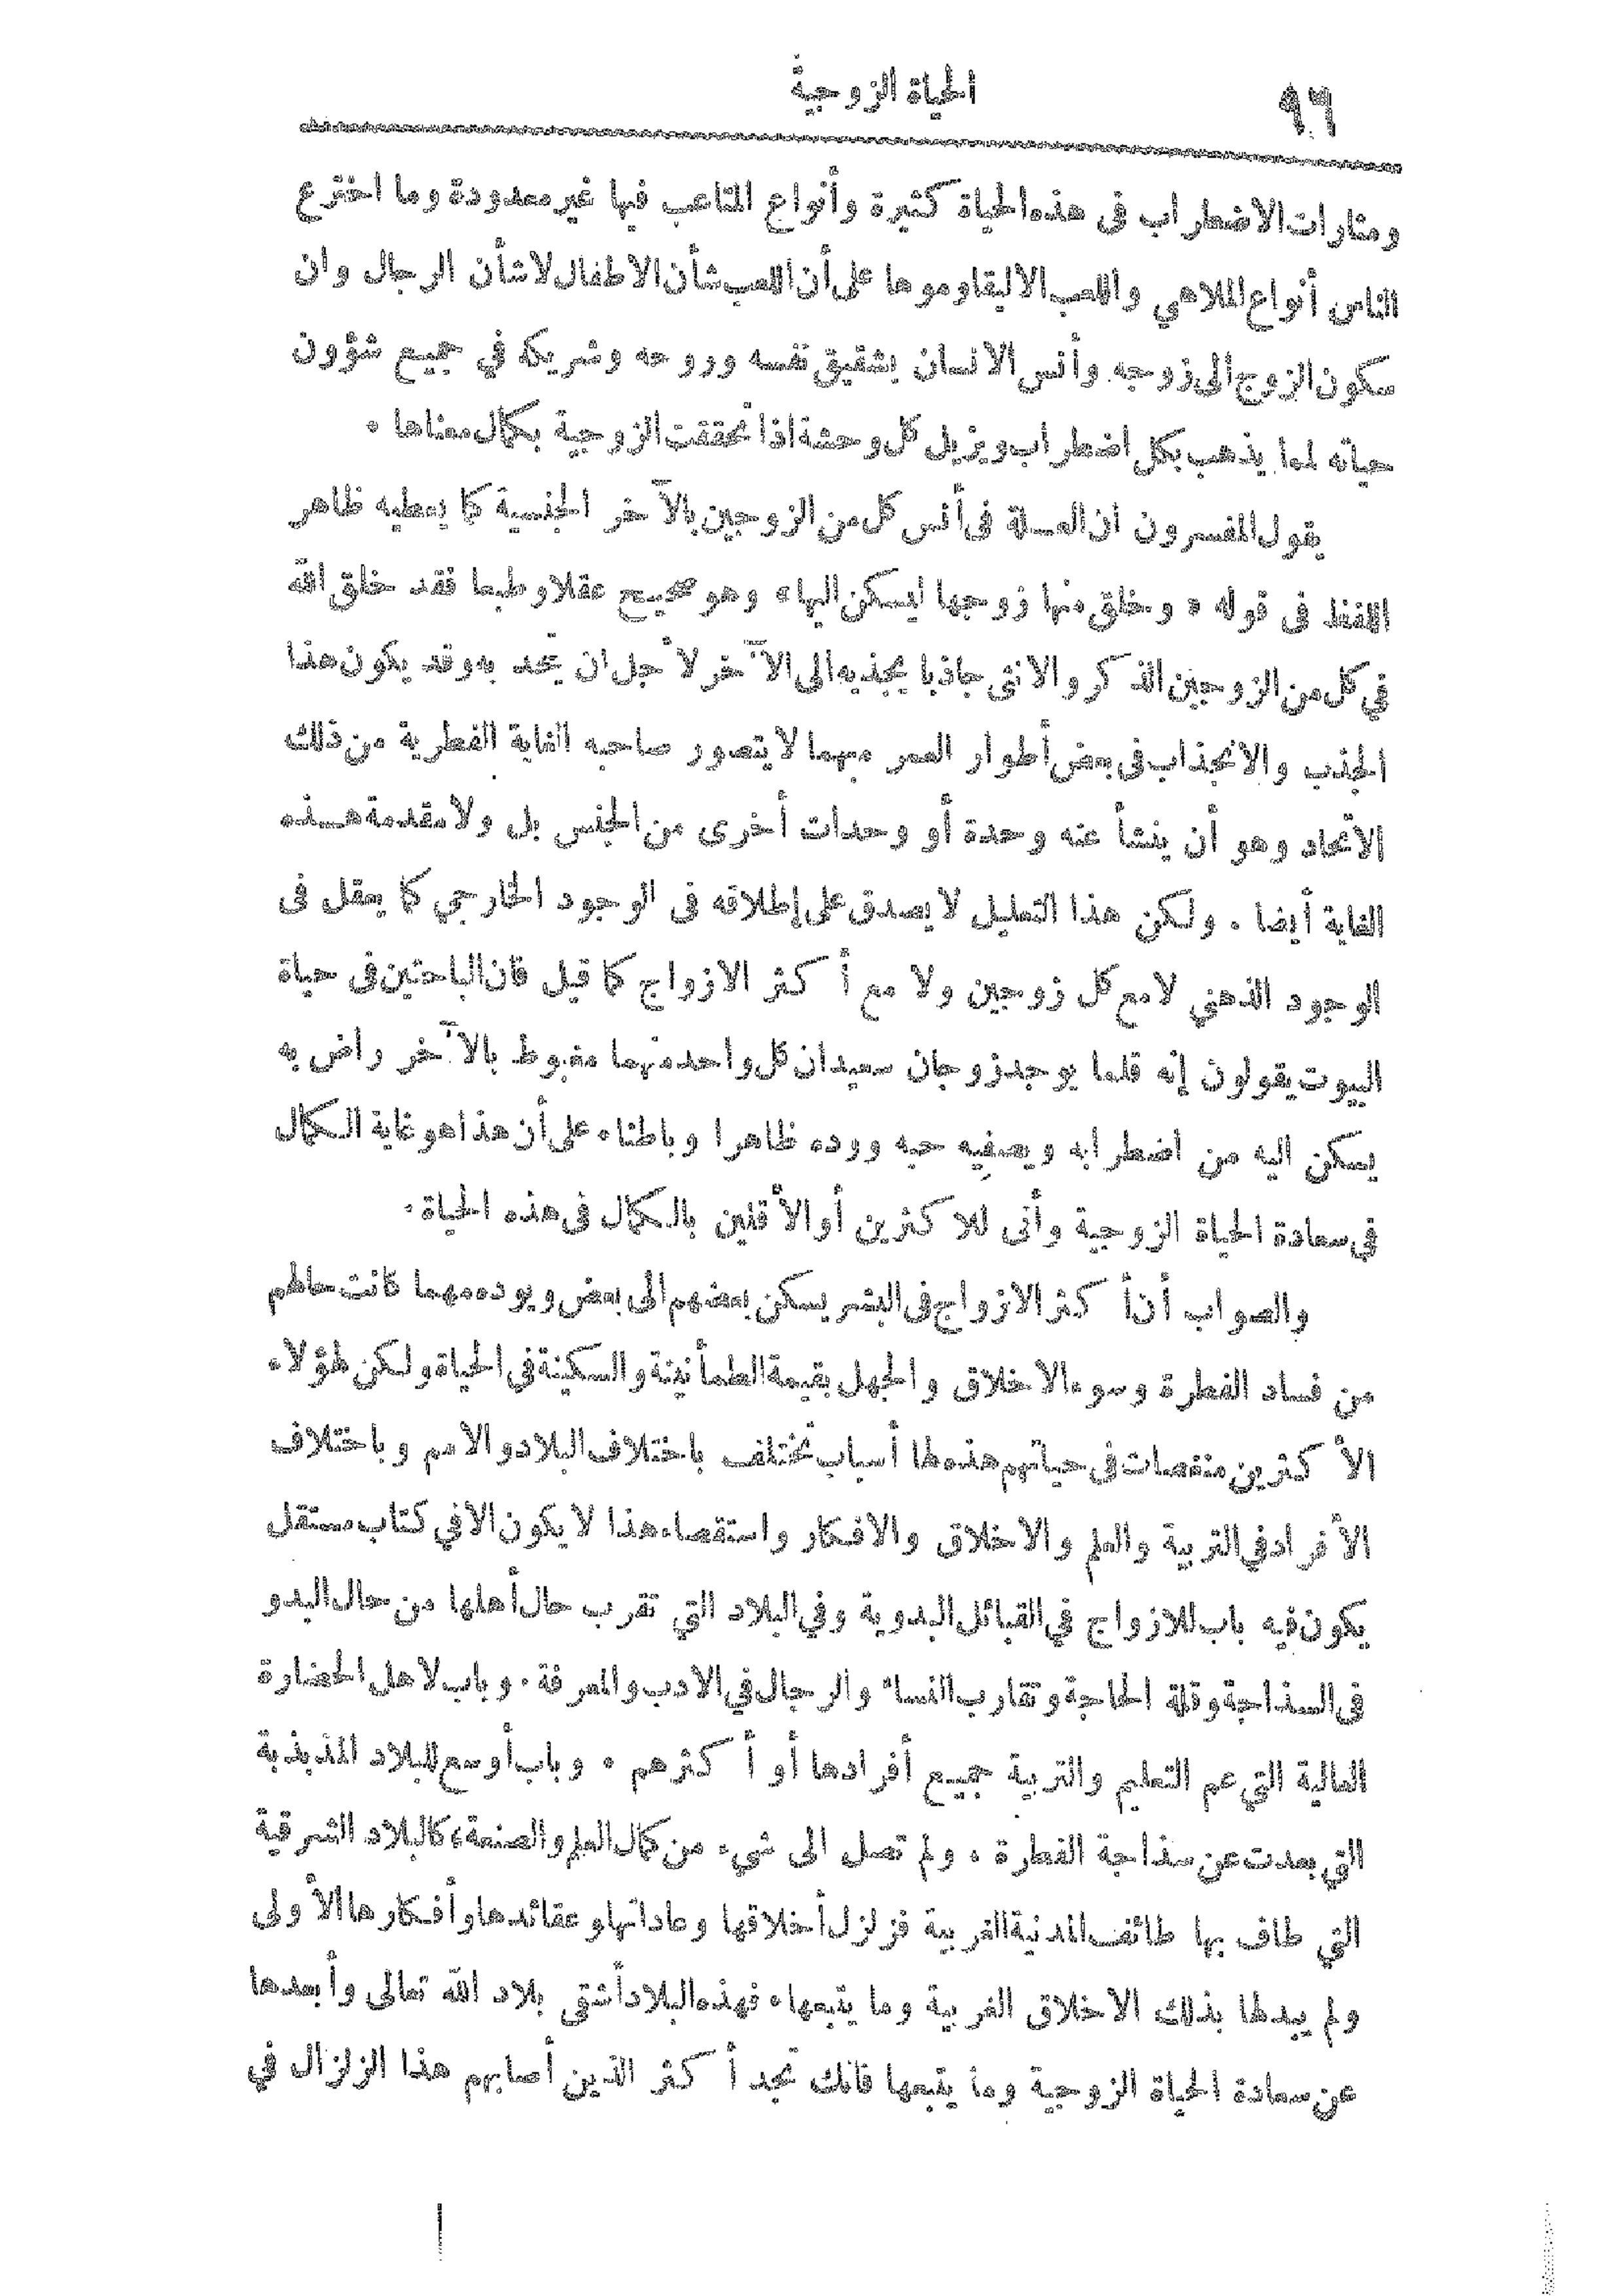 ٩٦
الحياة الزوجية
ومثارات الاضطراب فى هذه الحياة كثيرة وأنواع المتاعب فيها غير معدودة وما اخترع
الناس أنواع الملاهي واللعب الا ليقاوموها على أن اللعب شأن الاطفال لا شأن الرجال وان
سكون الزوج الى زوجه وأنس الانسان بشقيق نفسه وروحه وشريكه في جميع شؤون
حياته لمما يذهب بكل اضطراب ويزيل كل وحشة اذا تحققت الزوجية بكمال معناها .
يقول المفسرون ان العلة فى أنس كل من الزوجين بالآخر الجنسية كما يعطيه ظاهر
اللفظ فى قوله « وخلق منها زوجها ليسكن اليها » وهو صحيح عقلا وطبعا فقد خلق الله
في كل من الزوجين الذكر والانثى جاذبا يجذبه الى الآخر لأجل ان يتحد به وقد يكون هذا
الجذب والانجذاب فى بعض أطوار العمر مبهما لا يتصور صاحبه الغاية الفطرية من ذلك
الاتحاد وهو أن ينشأ عنه وحدة أو وحدات أخرى من الجنس بل ولا مقدمة هـذه
الغاية أيضا . ولكن هذا التعليل لا يصدق على إطلاقه فى الوجود الخارجي كما يعقل فى
الوجود الذهني لا مع كل زوجين ولا مع أكثر الازواج كما قيل فان الباحثين فى حياة
البيوت يقولون إنه قلما يوجد زوجان سعيدان كل واحد منهما مغبوط بالآخر راض به
يسكن اليه من اضطرابه ويصفيه حبه ووده ظاهرا وباطنا. على أن هذا هو غاية الكمال
في سعادة الحياة الزوجية وأنى للاكثرين أو الأقلين بالكمال فى هذه الحياة .
والصواب أن أكثر الازواج فى البشر يسكن بعضهم الى بعض ويوده مهما كانت حالهم
من فساد الفطرة وسوء الاخلاق والجهل بقيمة الطمأنينة والسكينة فى الحياة ولكن لهؤلاء
الأكثرين منغصات فى حياتهم هذه لها أسباب تختلف باختلاف البلاد والامم وباختلاف
الأفراد في التربية والعلم والاخلاق والافكار واستقصاء هذا لا يكون الا في كتاب مستقل
يكون فيه باب للازواج في القبائل البدوية وفي البلاد التي تقرب حال أهلها من حال البدو
فى السذاجة وقلة الحاجة وتقارب النساء والرجال في الادب والمعرفة . وباب لاهل الحضارة
العالية التي عم التعليم والتربية جميع أفرادها أو أكثرهم . وباب أوسع للبلاد المذبذبة
التي بعدت عن سذاجة الفطرة ، ولم تصل الى شيء من كمال العلم والصنعة، كالبلاد الشرقية
التي طاف بها طائف المدنية الغربية فزلزل أخلاقها وعاداتها وعقائدها وأفكارها الأولى
ولم يبدلها بذلك الاخلاق الغربية وما يتبعها . فهذه البلاد أشقى بلاد الله تعالى وأبعدها
عن سعادة الحياة الزوجية وما يتبعها فانك تجد أكثر الذين أصابهم هذا الزلزال في